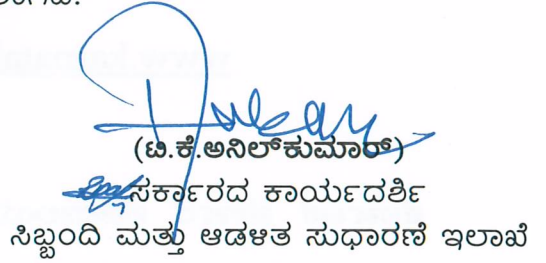 (ಟಿ.ಕೆ.ಅನಿಲ್‌ಕುಮಾರ್)
ಸರ್ಕಾರದ ಕಾರ್ಯದರ್ಶಿ
ಸಿಬ್ಬಂದಿ ಮತ್ತು ಆಡಳಿತ ಸುಧಾರಣೆ ಇಲಾಖೆ